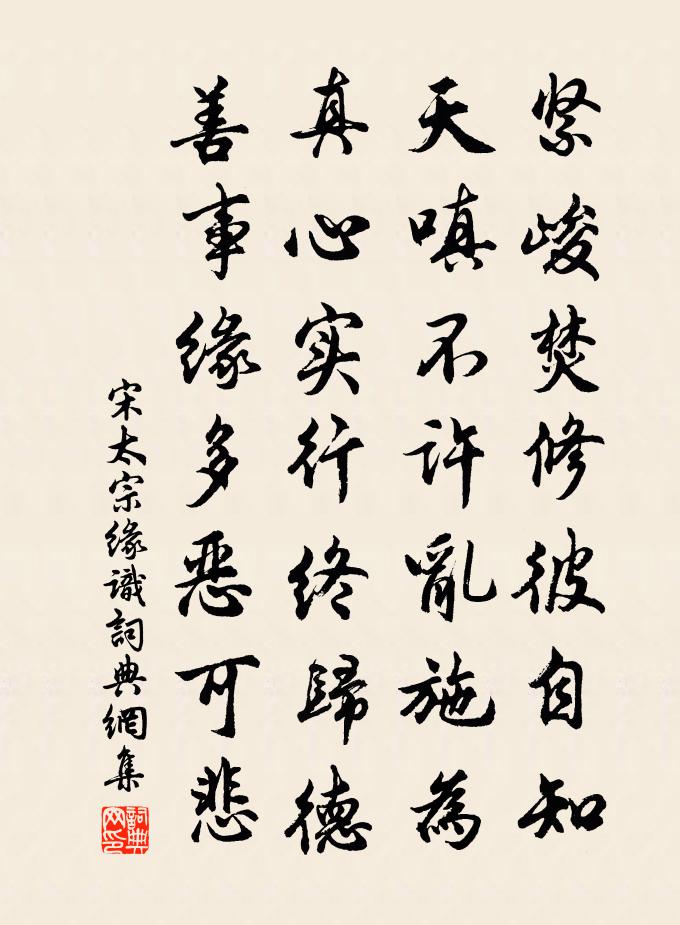 紧峻焚修彼自知
天嗔不许亂施為
真心实行终歸德
善事缘多惡可悲
宋太宗缘識詞典網集
詞典網印